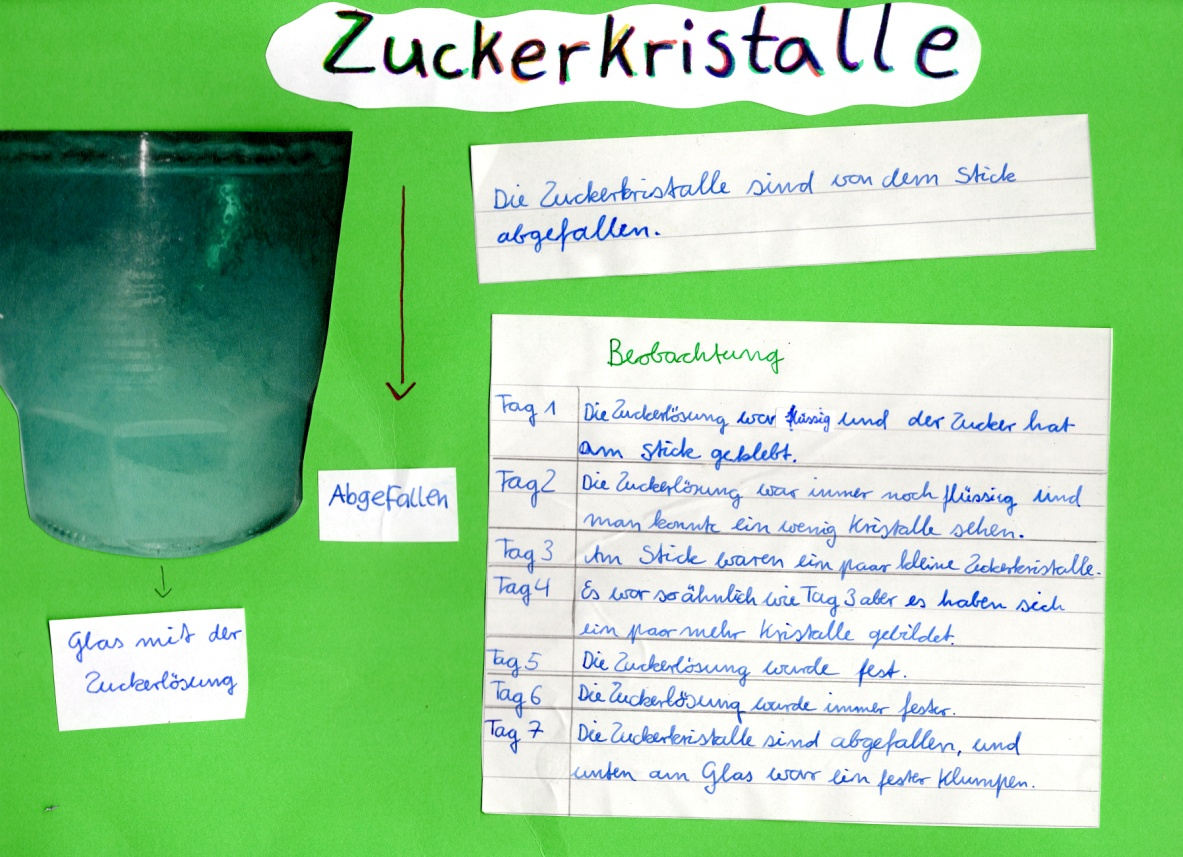 Zuckerkristalle
Die Zuckerkristalle sind von dem Stick
abgefallen.
Abgefallen
Glas mit der
Zuckerlösung
Beobachtung
Tag 1 Die Zuckerlösung war flüssig und der Zucker hat
am Stick geklebt.
Tag 2 Die Zuckerlösung war immer noch flüssig und
man konnte ein wenig Kristalle sehen.
Tag 3 Am Stick waren ein paar kleine Zuckerkristalle.
Tag 4 Es war so ähnlich wie Tag 3 aber es haben sich
ein paar mehr Kristalle gebildet.
Tag 5 Die Zuckerlösung wurde fest.
Tag 6 Die Zuckerlösung wurde immer fester.
Tag 7 Die Zuckerkristalle sind abgefallen, und
unten am Glas war ein fester Klumpen.